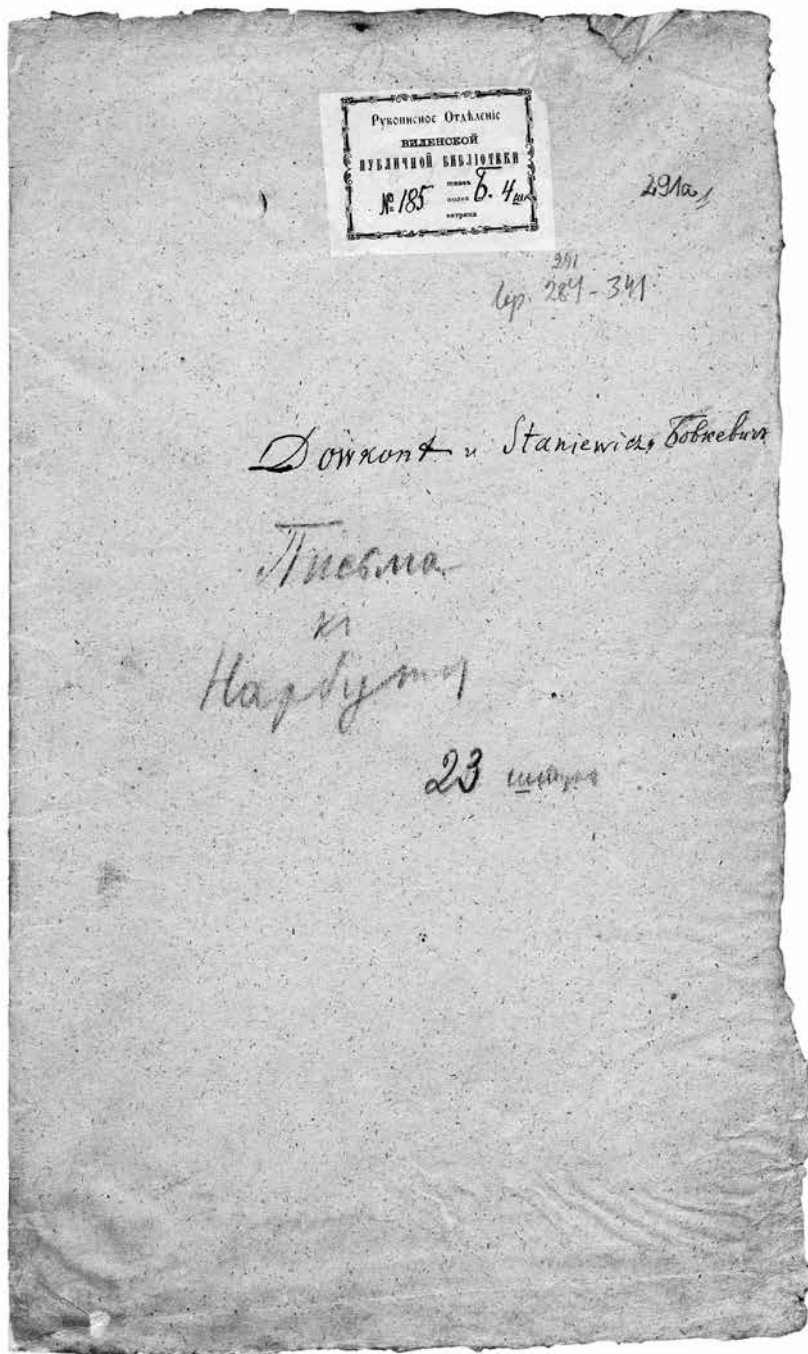 Рукописное Отдѣленіе
ВИЛЕНСКОЙ
ПУБЛИЧНОЙ БИБЛІОТЕКИ
№ 185 шкафъ полка витрина Б. 4
291a
291
284-341
Dowkont и Staniewicz,
Письма
къ
Нарбуту
23 штуки